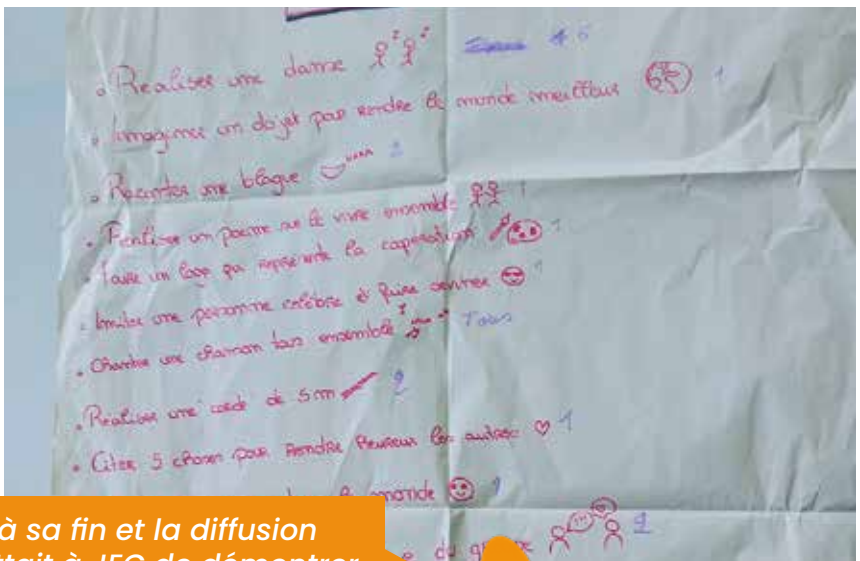 • Réaliser une danse 4 6
• Imaginer un objet pour rendre le monde meilleur 1
• Raconter une blague HAHA 2
• Réaliser un poème sur le vivre ensemble 1
• Faire un logo qui représente la coopération 1
• Imiter une personne célèbre et faire deviner 1
• Chanter une chanson tous ensemble Tous
• Réaliser une corde de 5m 2
• Citer 5 choses pour rendre heureux les autres 1
monde 1
du 2
à sa fin et la diffusion